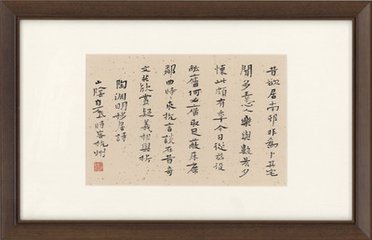 昔欲居南邨非為卜其宅
聞多素心人樂與數晨夕
懷此頗有年今日從茲役
敝廬何必廣取足蔽床席
鄰曲時來抗言談在昔奇
文共欣賞疑義相與析
陶淵明移居詩
山陰時客杭州